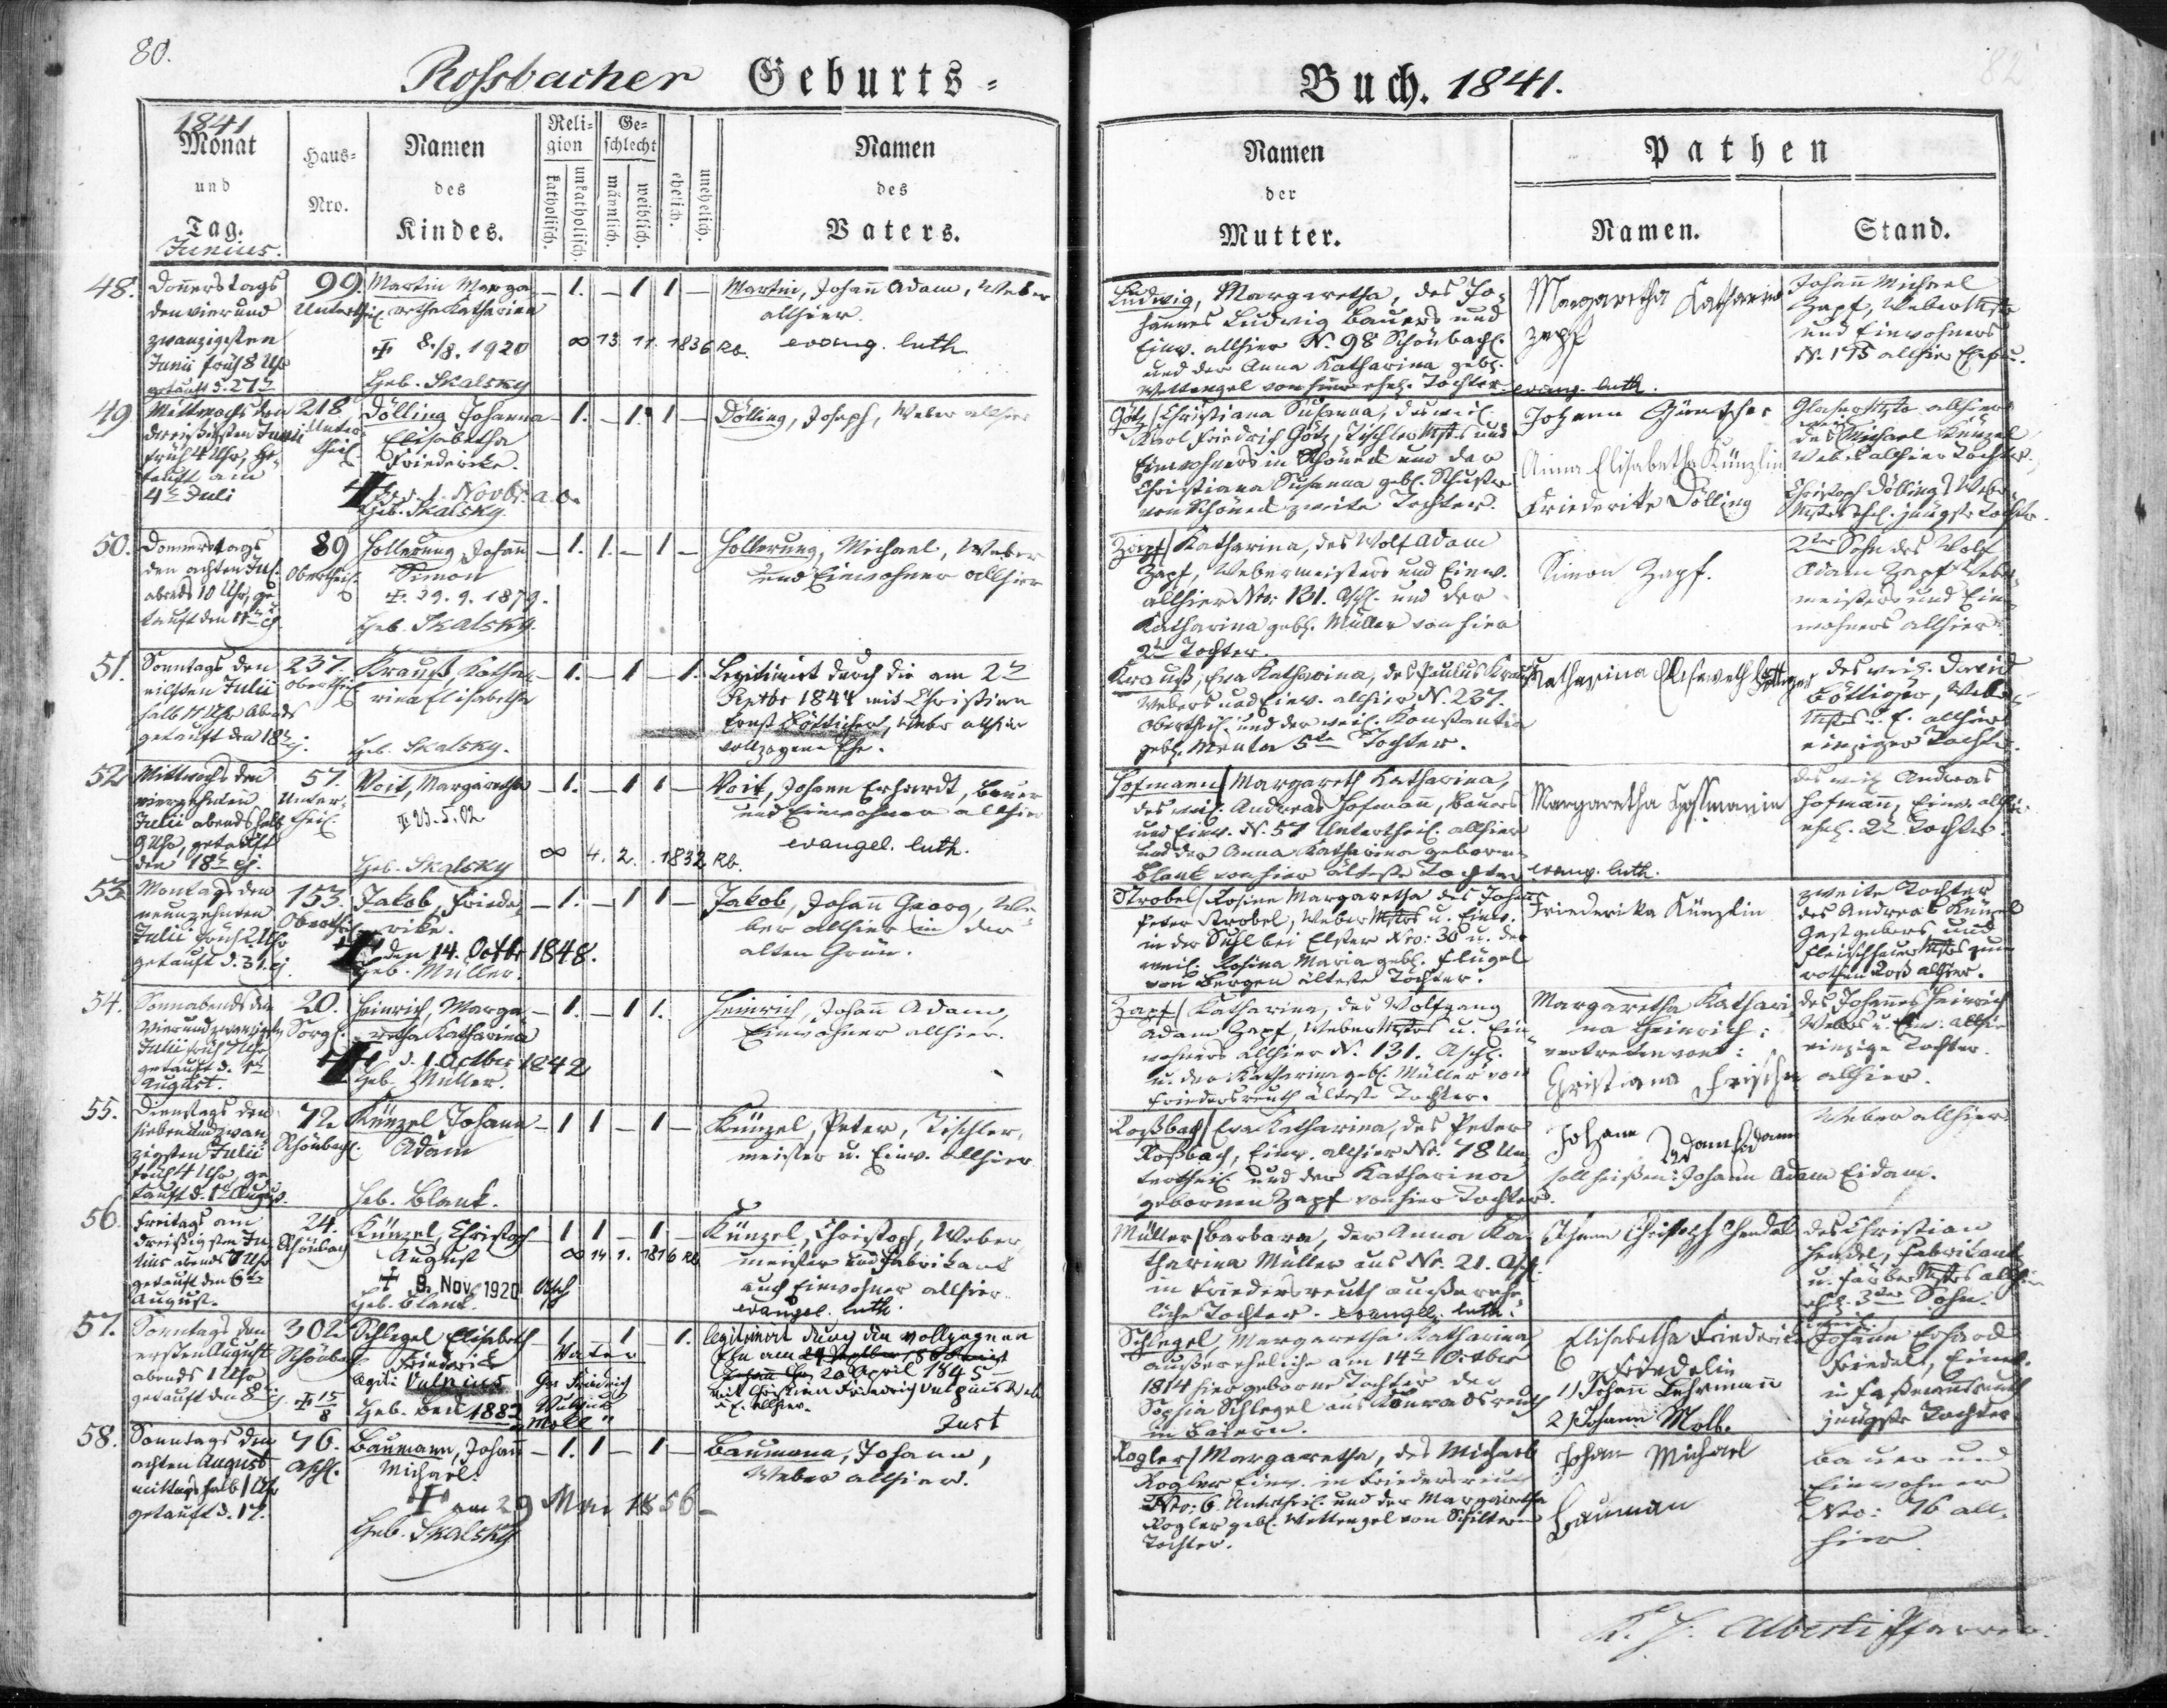 80.
Roßbacher Geburts-
1841
Monat
und
Tag.
Junius.
Haus-
Nro.
Namen
des
Kindes.
Reli-
gion
katholisch.
unkatholisch.
Ge-
schlecht
männlich.
weiblich.
ehelich.
unehelich.
Namen
des
Vaters.
48.
Donnerstags
den vier und
zwanzigsten
Junii früh 8 Uhr
getauft d. 27
99.
Untertheil
Martin Marga-
retha Katharina
8./8. 1920
Heb. Skalsky
– 1. – 1 1 –
∞ 13. 11. 1836 Rb.
Martin, Johann Adam, Weber
allhier.
evang. luth.
49.
Mittwochs den
dreißigsten Junii
früh 4 Uhr, ge-
tauft am
4 Juli
218
Unter-
theil
Dölling Johanna
Elisabetha
Friedericke.
d. 1. Novbr. a. c.
Heb. Skalsky
– 1. – 1. 1 –
Dölling, Joseph, Weber allhier
50.
Donnerstags
den achten Jul.
abends 10 Uhr, ge-
tauft den 11 ej.
89
Obertheil
Hollerung Johann
Simon
29. 9. 1879.
Heb. Skalsky.
– 1. 1. – 1 –
Hollerung, Michael, Weber
und Einwohner allhier
51.
Sonntags den
eilften Julii
halb 11 Uhr Abends
getauft den 18 ej.
237.
Obertheil
Krauß, Katha-
rina Elisabetha
Heb. Skalsky.
– 1. – 1 – 1.
Legitimirt durch die am 2
Septbr 1844 mit Christian
Ernst Bötticher, Weber allhier
vollzogene Ehe.
52.
Mittwochs den
vierzehnten
Julii abends halb
9 Uhr, getauft
den 18 ej.
57.
Unter-
theil
Voit, Margaretha
23. 5. 02
Heb. Skalsky
– 1. – 1 1 –
∞ 4. 2. 1832 Rb.
Voit, Johann Erhardt, Bauer
und Einwohner allhier
evangel. luth.
53.
Montags den
neunzehnten
Julii früh 2 Uhr
getauft d. 31. ej.
153.
Obertheil
Jakob, Friede-
rike.
den 14. Octbr 1848.
Heb. Müller.
– 1. – 1 1 –
Jakob, Johann Georg, We-
ber allhier in der
alten Grün.
54.
Sonnabends den
vier und zwanzigsten
Julii früh 7 Uhr
getauft d. 1
August.
20.
Sorg.
Heinrich, Marga-
retha Katharina
d. 1. Octber 1842
Heb. Müller.
– 1. – 1 1.
Heinrich, Johann Adam,
Einwohner allhier.
55.
Dienstags den
sieben und zwan-
zigsten Julii
früh 4 Uhr, ge-
tauft d. 1 August.
72
Schönbach.
Künzel Johann
Adam
Heb. Blank.
– 1 1 – 1 –
Künzel, Peter, Tischler-
meister u. Einw. allhier
56.
Freitags am
dreißigsten Ju-
lius abends 7 Uhr
getauft den 6
August.
24.
Schönbach
Künzel, Christoph
August
8. Nov. 1920 Asch
Heb. Blank.
– 1 1 – 1 –
∞ 14. 1. 1816 Rb.
Künzel, Christoph, Weber
meister und Fabrikant
auch Einwohner allhier.
evangel. luth.
57.
Sonntags den
ersten August
abends 1 Uhr
getauft den 8 ej.
302
Schönbach
15/8
Schlegel Elisabeth
Friederick
legiti. Vulpius
Heb. den 1882
1. 1 1.
Vater
Friedrich
Vulpius
legitimirt durch die vollzogene
20 April 1845
mit Christian Friedrich Vulpius Web.
u. E. allhier.
Just
58.
Sonntags den
achten August
mittags halb 1 Uhr
getauft d. 17.
76.
Asch.
Baumann, Johann
Michael.
am 29 Mai 1856 –
Heb. Skalsky
– 1. 1 – 1 –
Baumann, Johann,
Weber allhier.
Buch. 1841.
82
Namen
der
Mutter.
Pathen
Namen.
Stand.
Ludwig, Margaretha, des Jo-
hannes Ludwig Bauers und
Einw. allhier N. 98 Schönbach.
und der Anna Katharina geb.
Wettengel von hier ehel. Tochter. evang. luth.
Margaretha Katharina
Zapf
Johann Michael
Zapf, Weber Mstr
und Einwohners
N. 175 allhier Ehefr.
Götz, Christiana Susanna, des weil.
Karl Friedrich Götz, Tischler Mstrs und
Einwohners in Schöneck und der
Christiana Susanna geb. Schuster
von Schöneck zweite Tochter.
Johann Güntscher
Anna Elisabetha Künzlin
Friederike Dölling
Glaser Mstr allhier
des weil. Michael Künzel
Webers allhier Tochter.
Christoph Dölling Web.
Mstrs ehel. jüngste Tochter.
Zapf, Katharina, des Wolf Adam
Zapf, Webermeisters und Einw.
allhier Nro. 131. Asch. und der
Katharina geb. Müller von hier
2 Tochter.
Simon Zapf.
2ter Sohn des Wolf
Adam Zapf Weber-
meisters und Ein-
wohners allhier.
Krauß, Eva Katharina, des Paulus Krauß
Webers und Einw. allhier N. 237.
Obertheil. und der weil. Konstantia
geb. Menta 5te Tochter.
Katharina Elisaveth Böttiger
des weil. David
Böttiger, Weber
Mstrs u. E. allhier
einzige Tochter.
Hofmann, Margareth Katharina,
des weil. Andreas Hofmann, Bauers
und Einw. N. 57 Untertheil. allhier
und der Anna Katharina geborne
Blank von hier älteste Tochter evang. luth.
Margaretha Hoffmanin
des weil. Andreas
Hofmann, Einw. allhier
ehel. 2 Tochter.
Strobel, Rosine Margaretha des Johann
Peter Strobel, Weber Mstrs u. Einw.
in der Suhl bei Elster Nro: 30 u. der
weil. Rosina Maria geb. Flügel
von Bergen älteste Tochter.
Friederika Künzlin
zweite Tochter
des Andreas Künzel
Gastgebers und
Fleischhauer Mstrs zum
rothen Roß allhier.
Zapf, Katharina, des Wolfgang
Adam Zapf, Weber Mstrs u. Ein-
wohners allhier N. 131. Asch.
u. der Katharina geb. Müller von
Friedersreuth älteste Tochter.
Margaretha Kathari-
na Heinrich:
vertreten von:
Christiana Frisch
des Johannes Heinrich
Webers u. Einw. allhier
einzige Tochter.
allhier.
Roßbach, Eva Katharina, des Peter
Roßbach, Einw. allhier Nr. 78 Un-
tertheil. und der Katharina
gebornen Zapf von hier Tochter.
Johann Adam
soll heißen: Johann Adam Eidam.
Weber allhier
Müller, Barbara, der Anna Ka-
tharina Müller aus Nr. 21. Asch.
in Friedersreuth außerehe-
liche Tochter. evangel. luth.
Johann Christoph Hendel
des Christian
Hendel, Fabrikant
u. Färber Mstrs allhier
ehel. 3ter Sohn.
Schlegel, Margaretha Katharina
außereheliche am 14 October
1814 hier geborne Tochter der
Sophia Schlegel aus Konradsreuth
in Baiern.
Elisabetha Friederika
Friedelin
1) Johann Lehrmann
2) Johann Molb.
Johann Erhard
Friedel, Einw.
in Faßmannsreuth
jüngste Tochter
Rogler, Margaretha, des Michael
Rogler Einw. in Friedersreuth
Nro: 6. Untertheil. und der Margaretha
Rogler geb. Wettengel von Schiltern
Tochter.
Johann Michael
Bauman
Bauer und
Einwohner
Nro: 76 all-
hier.
Alberti Pfarrer.